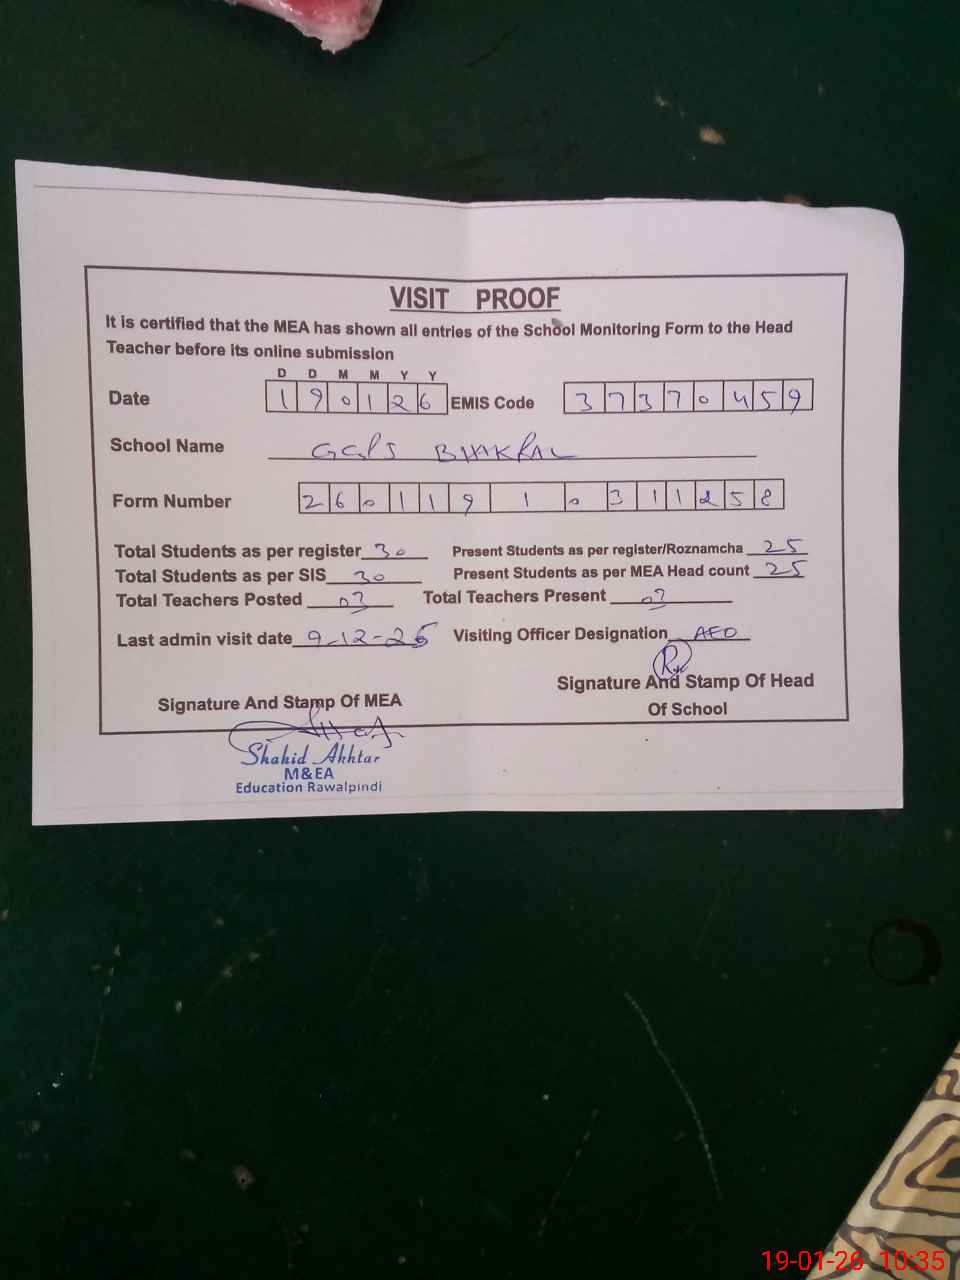 VISIT PROOF
It is certified that the MEA has shown all entries of the School Monitoring Form to the Head
Teacher before its online submission
D D M M Y Y
Date 1 9 0 1 2 6 EMIS Code 3 7 3 7 0 4 5 9
School Name GGPS BHAKRAL
Form Number 2 6 0 1 1 9 1 0 3 1 1 2 5 8
Total Students as per register 30 Present Students as per register/Roznamcha 25
Total Students as per SIS 30 Present Students as per MEA Head count 25
Total Teachers Posted Total Teachers Present
Last admin visit date 9-12-25 Visiting Officer Designation AEO
Signature And Stamp Of MEA Signature And Stamp Of Head
Of School
Shahid Akhtar
M&EA
Education Rawalpindi
19-01-26 10:35